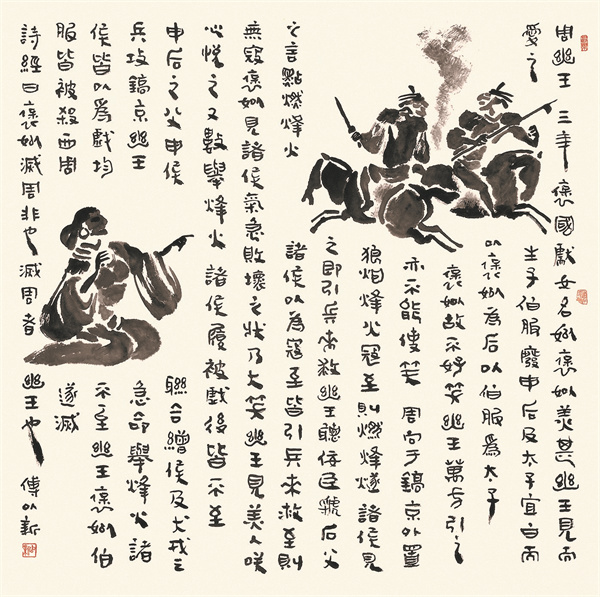 周幽王三年褒國獻女名姒褒姒美甚幽王見而
愛之
生子伯服廢申后及太子宜臼而
以褒姒為后以伯服為太子
褒姒故不好笑幽王萬方引之
亦不能使笑 周向于鎬京外置
狼烟烽火寇至則燃烽燧諸侯見
之即引兵來救幽王聽佞臣虢石父
之言點燃烽火
諸侯以為寇至皆引兵來救至則
無寇褒姒見諸侯氣急敗壞之狀乃大笑幽王見美人咲
心悅之又數舉烽火諸侯屢被戲後皆不至
申后之父申侯
聯合繒侯及犬戎之
兵攻鎬京幽王
急命舉烽火諸
侯皆以為戲均
不至幽王褒姒伯
服皆被殺西周
遂滅
詩經曰褒姒滅周非也 滅周者 幽王也 傅以新